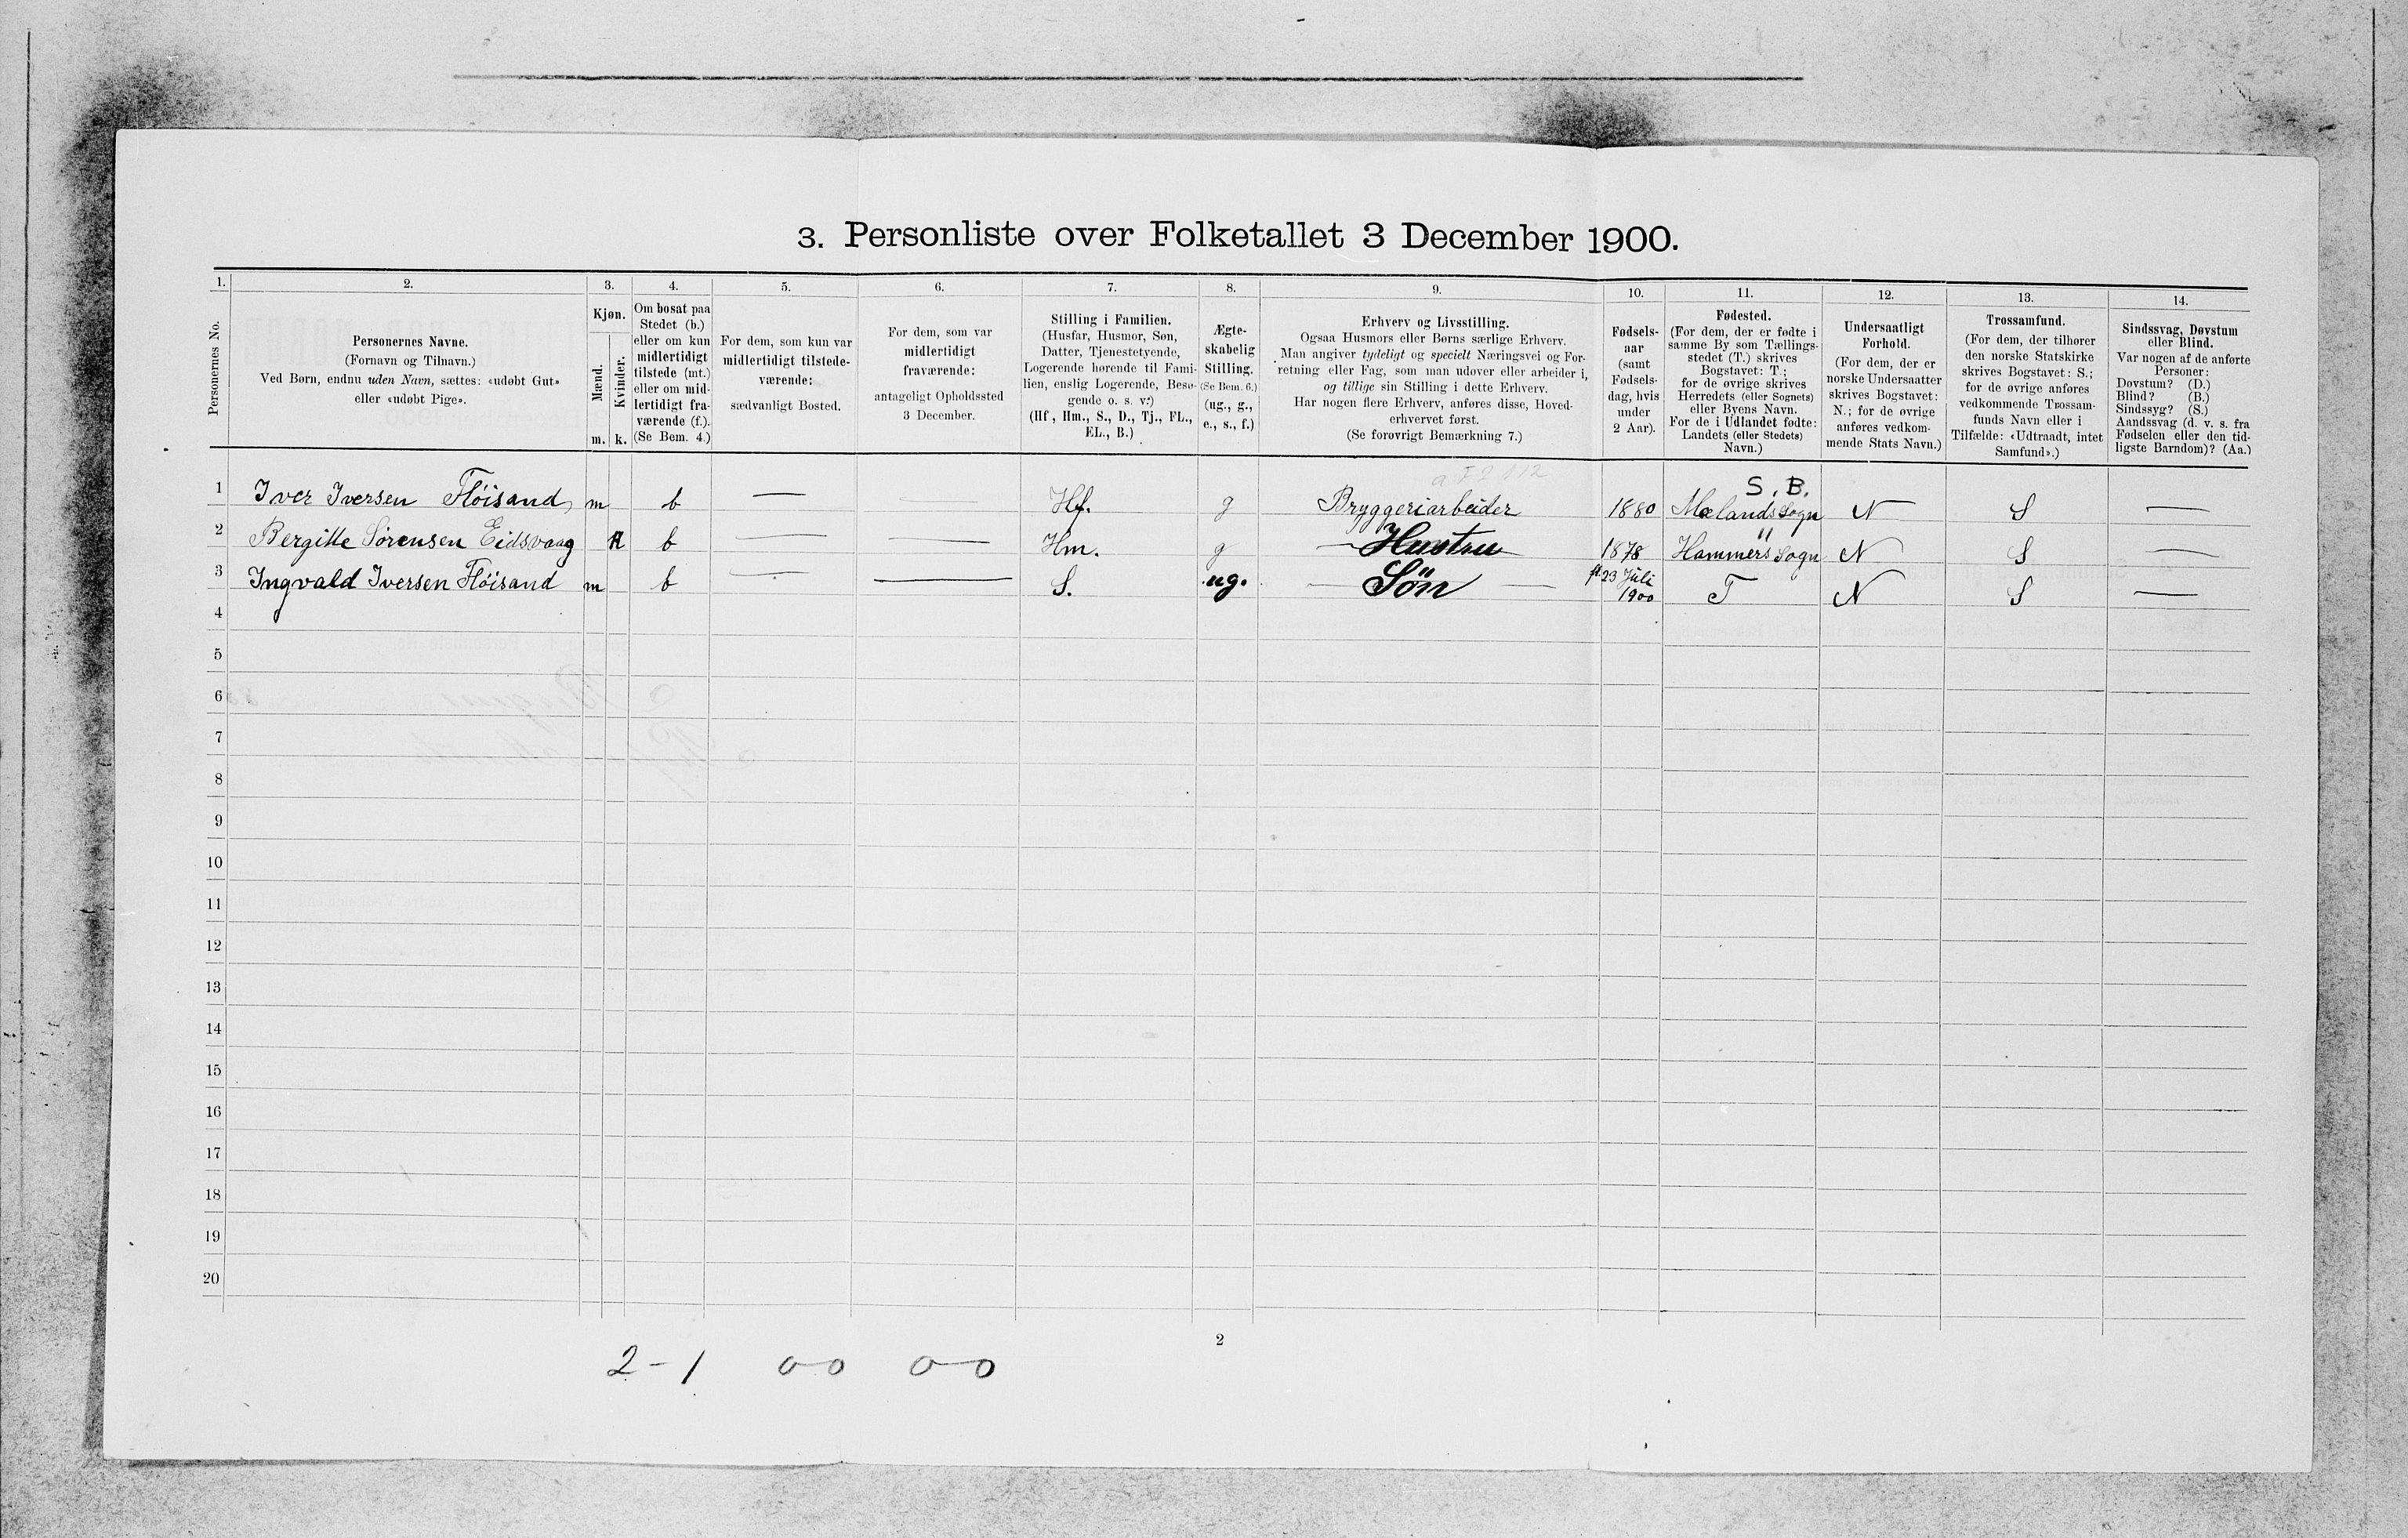 3. Personliste over Folketallet 3 December 1900.
1. 2. 3. 4. 5. 6. 7. 8. 9. 10. 11. 12. 13. 14.
Personernes No.
Personernes Navne.
(Fornavn og Tilnavn.)
Ved Børn, endnu uden Navn, sættes: «udøbt Gut»
eller «udøbt Pige».
Kjøn.
Mænd.
Kvinder.
m. k.
Om bosat paa
Stedet (b.)
eller om kun
midlertidigt
tilstede (mt.)
eller om mid-
lertidigt fra-
værende (f.).
(Se Bem. 4.)
For dem, som kun var
midlertidigt tilstede-
værende:
sædvanligt Bosted.
For dem, som var
midlertidigt
fraværende:
antageligt Opholdssted
3 December.
Stilling i Familien.
(Husfar, Husmor, Søn,
Datter, Tjenestetyende,
Logerende hørende til Fami-
lien, enslig Logerende, Besø-
gende o. s. v.)
(Hf., Hm., S., D., Tj., FL.,
EL., B.)
Ægte-
skabelig
Stilling.
(Se Bem. 6.)
(ug., g.,
e., s., f.)
Erhverv og Livsstilling.
Ogsaa Husmors eller Børns særlige Erhverv.
Man angiver tydeligt og specielt Næringsvei og For-
retning eller Fag, som man udøver eller arbeider i,
og tillige sin Stilling i dette Erhverv.
Har nogen flere Erhverv, anføres disse, Hoved-
erhvervet først.
(Se forøvrigt Bemærkning 7.)
Fødsels-
aar
(samt
Fødsels-
dag, hvis
under
2 Aar).
Fødested.
(For dem, der er fødte i
samme By som Tællings-
stedet (T.) skrives
Bogstavet: T.;
for de øvrige skrives
Herredets (eller Sognets)
eller Byens Navn.
For de i Udlandet fødte:
Landets (eller Stedets)
Navn.)
Undersaatligt
Forhold.
(For dem, der er
norske Undersaatter
skrives Bogstavet:
N.; for de øvrige
anføres vedkom-
mende Stats Navn.)
Trossamfund.
(For dem, der tilhører
den norske Statskirke
skrives Bogstavet: S.;
for de øvrige anføres
vedkommende Trossam-
funds Navn eller i
Tilfælde: «Udtraadt, intet
Samfund».)
Sindssvag, Døvstum
eller Blind.
Var nogen af de anførte
Personer:
Døvstum? (D.)
Blind? (B.)
Sindssyg? (S.)
Aandssvag (d. v. s. fra
Fødselen eller den tid-
ligste Barndom)? (Aa.)
S. B.
1 Iver Iversen Fløisand, m b — — Hf. g Bryggeriarbeider 1880 Mælands Sogn N S —
2 Bergitte Sørensen Eidsvaag k b — — Hm. g — Hustru — 1878 Hammers Sogn N S —
3 Ingvald Iversen Fløisand m b — — S. ug. — Søn — 23 Juli
1900 T N S —
4
5
6
7
8
9
10
11
12
13
14
15
16
17
18
19
20
2
2-1 0-0 0-0